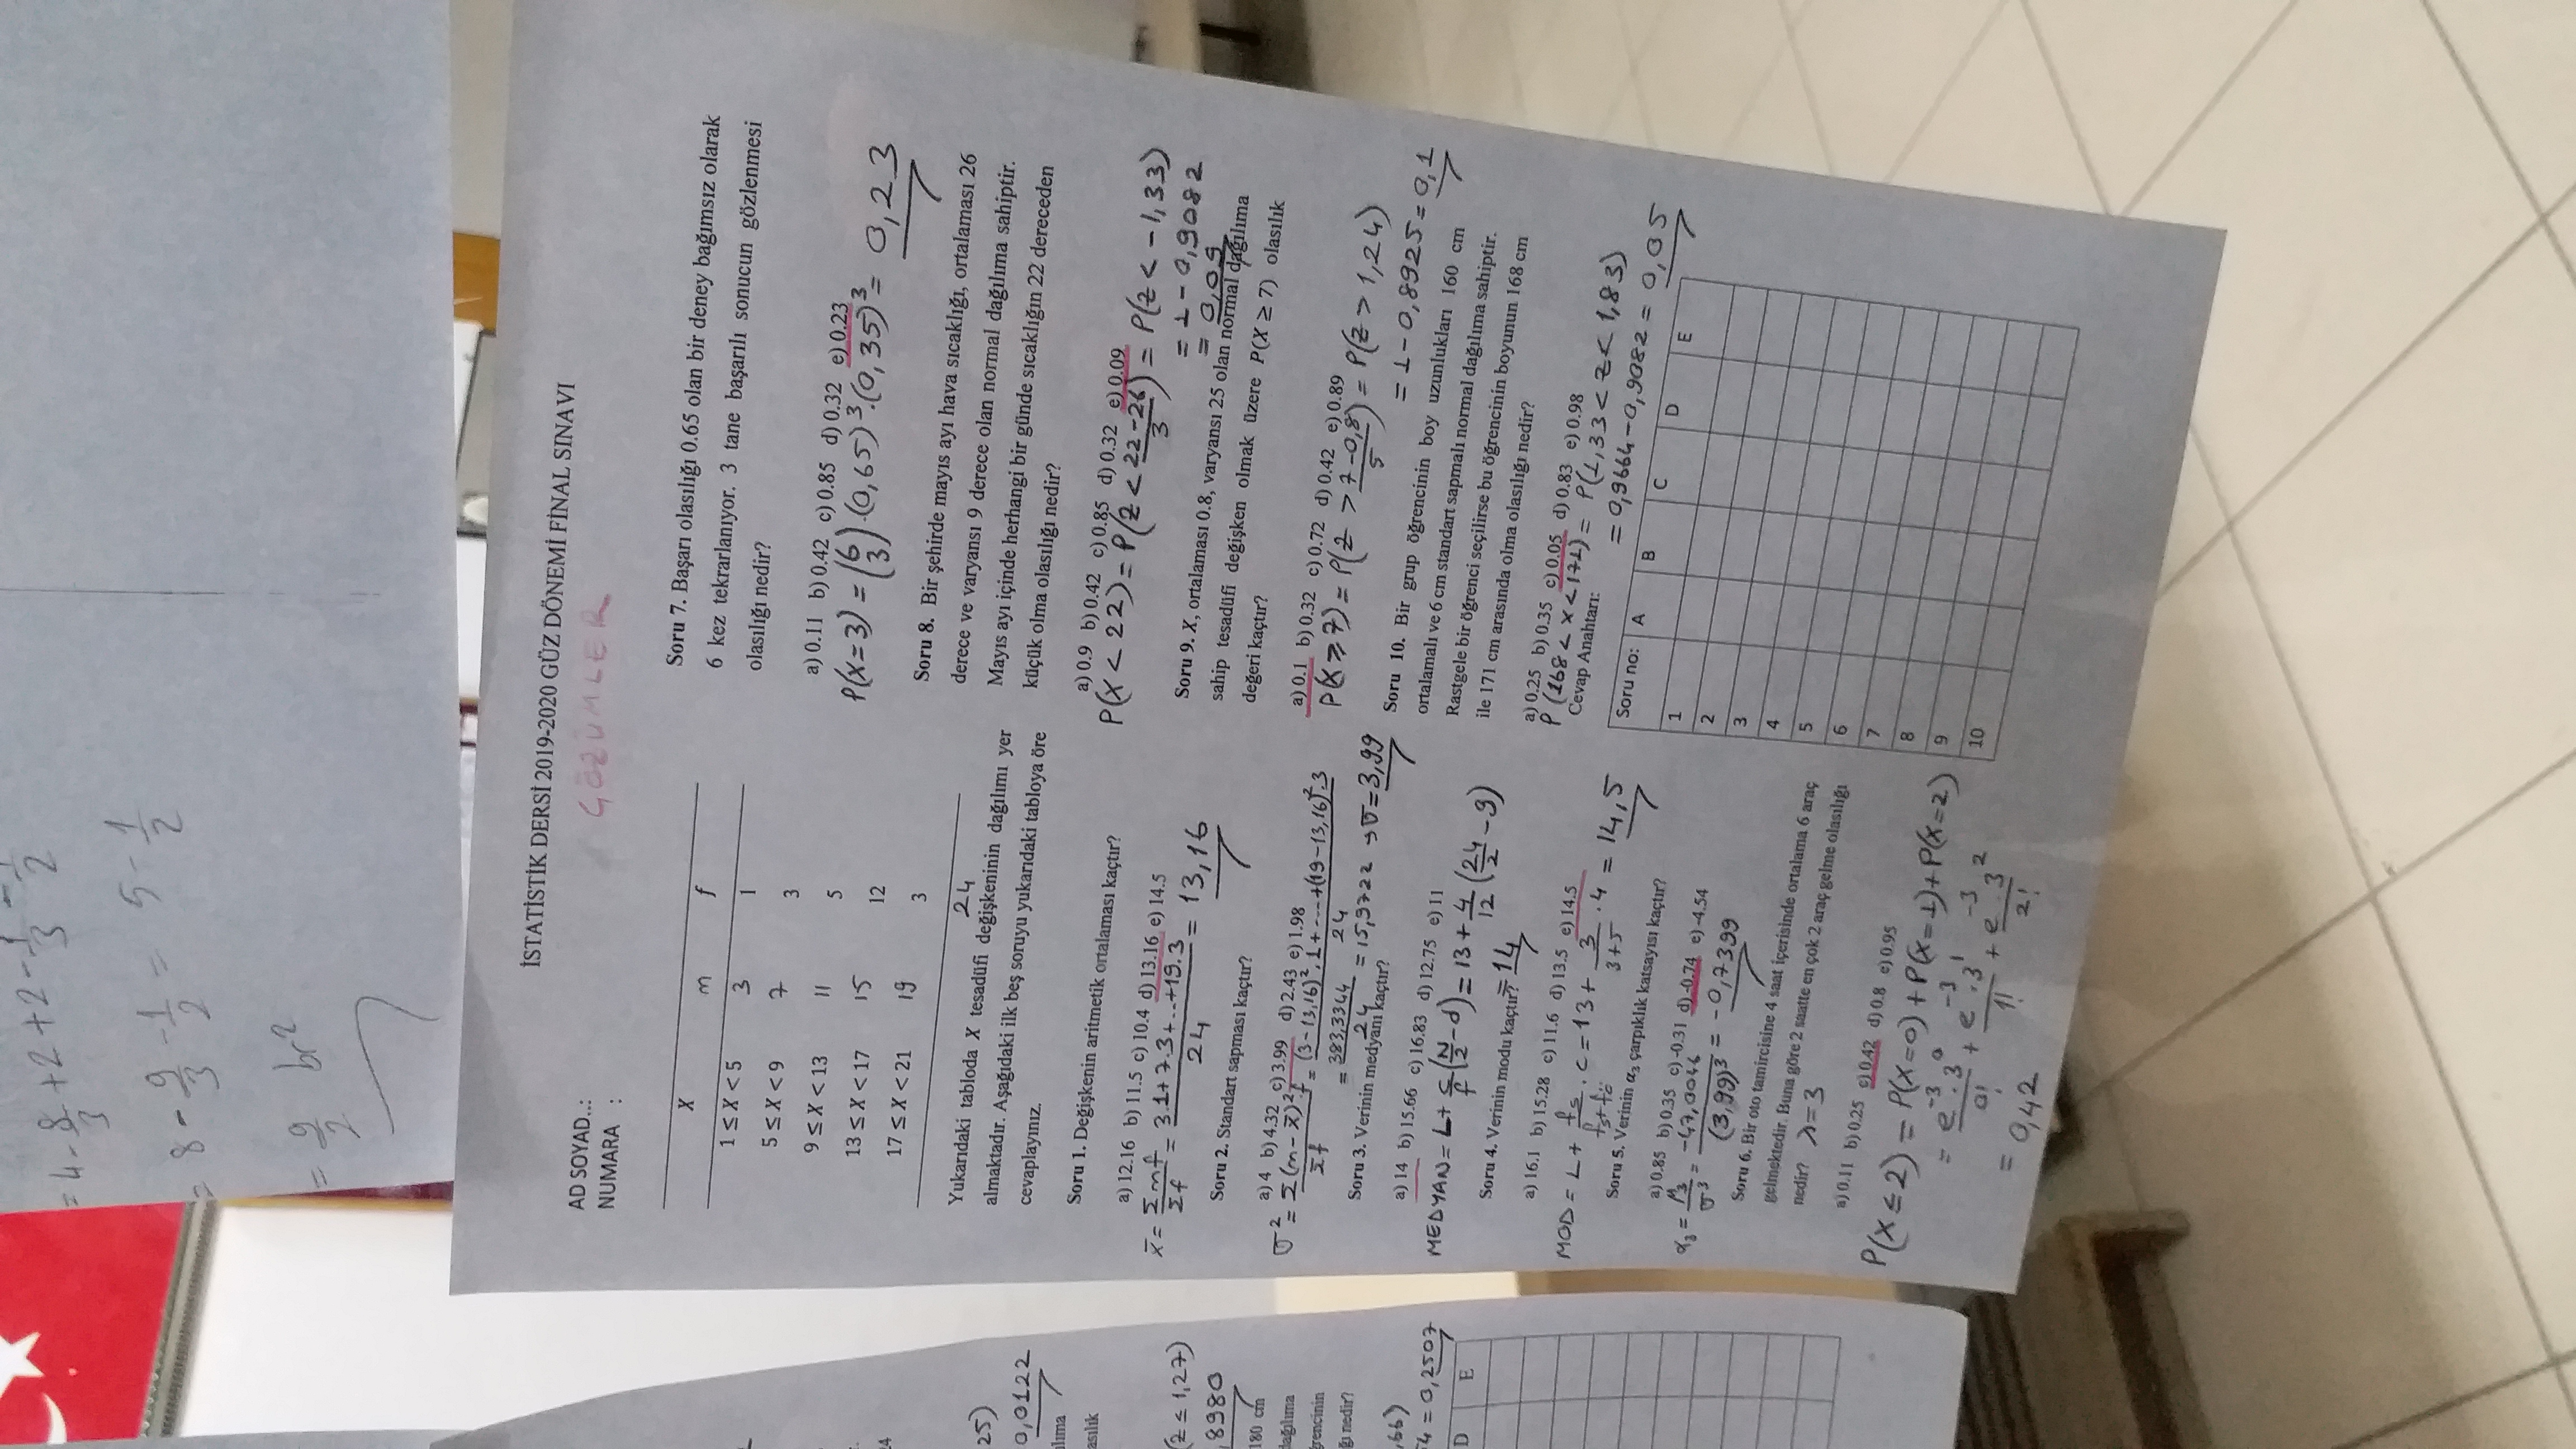 = 4 - 8/3 + 2 + 2 - 1/3 - 1/2
= 8 - 9/3 - 1/2 = 5 - 1/2
= 9/2 br²
25)
0,0122
asılık
(z ≤ 1,27)
,8980
180 cm
dağılıma
ğrencinin
ğı nedir?
,66)
54 = 0,2507
D E
İSTATİSTİK DERSİ 2019-2020 GÜZ DÖNEMİ FİNAL SINAVI
AD SOYAD..:
ÇÖZÜMLER
NUMARA :
X m f
1 ≤ X < 5 3 1
5 ≤ X < 9 7 3
9 ≤ X < 13 11 5
13 ≤ X < 17 15 12
17 ≤ X < 21 19 3
24
Yukarıdaki tabloda X tesadüfi değişkeninin dağılımı yer
almaktadır. Aşağıdaki ilk beş soruyu yukarıdaki tabloya öre
cevaplayınız.
Soru 1. Değişkenin aritmetik ortalaması kaçtır?
a) 12.16 b) 11.5 c) 10.4 d) 13.16 e) 14.5
x̄ = Σmf/Σf = (3.1+7.3+...+19.3)/24 = 13,16
Soru 2. Standart sapması kaçtır?
a) 4 b) 4.32 c) 3.99 d) 2.43 e) 1.98
σ² = Σ(m-x̄)²f/Σf = ((3-13,16)².1+----+(19-13,16)².3)/24
= 383,3344/24 = 15,9722 → σ = 3,99
Soru 3. Verinin medyanı kaçtır?
a) 14 b) 15.66 c) 16.83 d) 12.75 e) 11
MEDYAN = L + c/f (N/2 - d) = 13 + 4/12 (24/2 - 9)
= 14
Soru 4. Verinin modu kaçtır?
a) 16.1 b) 15.28 c) 11.6 d) 13.5 e) 14.5
MOD = L + fs/(fs+fö) . c = 13 + 3/(3+5) . 4 = 14,5
Soru 5. Verinin α₃ çarpıklık katsayısı kaçtır?
a) 0.85 b) 0.35 c) -0.31 d) -0.74 e) -4.54
α₃ = μ₃/σ³ = -47,0046/(3,99)³ = -0,7399
Soru 6. Bir oto tamircisine 4 saat içerisinde ortalama 6 araç
gelmektedir. Buna göre 2 saatte en çok 2 araç gelme olasılığı
nedir? λ=3
a) 0.11 b) 0.25 c) 0.42 d) 0.8 e) 0.95
P(X ≤ 2) = P(X=0) + P(X=1) + P(X=2)
= e⁻³.3⁰/0! + e⁻³.3¹/1! + e⁻³.3²/2!
= 0,42
Soru 7. Başarı olasılığı 0.65 olan bir deney bağımsız olarak
6 kez tekrarlanıyor. 3 tane başarılı sonucun gözlenmesi
olasılığı nedir?
a) 0.11 b) 0.42 c) 0.85 d) 0.32 e) 0.23
P(X=3) = (6 3).(0,65)³.(0,35)³ = 0,23
Soru 8. Bir şehirde mayıs ayı hava sıcaklığı, ortalaması 26
derece ve varyansı 9 derece olan normal dağılıma sahiptir.
Mayıs ayı içinde herhangi bir günde sıcaklığın 22 dereceden
küçük olma olasılığı nedir?
a) 0.9 b) 0.42 c) 0.85 d) 0.32 e) 0.09
P(X < 22) = P(Z < (22-26)/3) = P(Z < -1,33)
= 1 - 0,9082
= 0,09
Soru 9. X, ortalaması 0.8, varyansı 25 olan normal dağılıma
sahip tesadüfi değişken olmak üzere P(X ≥ 7) olasılık
değeri kaçtır?
a) 0.1 b) 0.32 c) 0.72 d) 0.42 e) 0.89
P(X ≥ 7) = P(Z > (7-0,8)/5) = P(Z > 1,24)
= 1 - 0,8925 = 0,1
Soru 10. Bir grup öğrencinin boy uzunlukları 160 cm
ortalamalı ve 6 cm standart sapmalı normal dağılıma sahiptir.
Rastgele bir öğrenci seçilirse bu öğrencinin boyunun 168 cm
ile 171 cm arasında olma olasılığı nedir?
a) 0.25 b) 0.35 c) 0.05 d) 0.83 e) 0.98
P(168 < X < 171) = P(1,33 < Z < 1,83)
Cevap Anahtarı:
= 0,9664 - 0,9082 = 0,05
Soru no: A B C D E
1
2
3
4
5
6
7
8
9
10